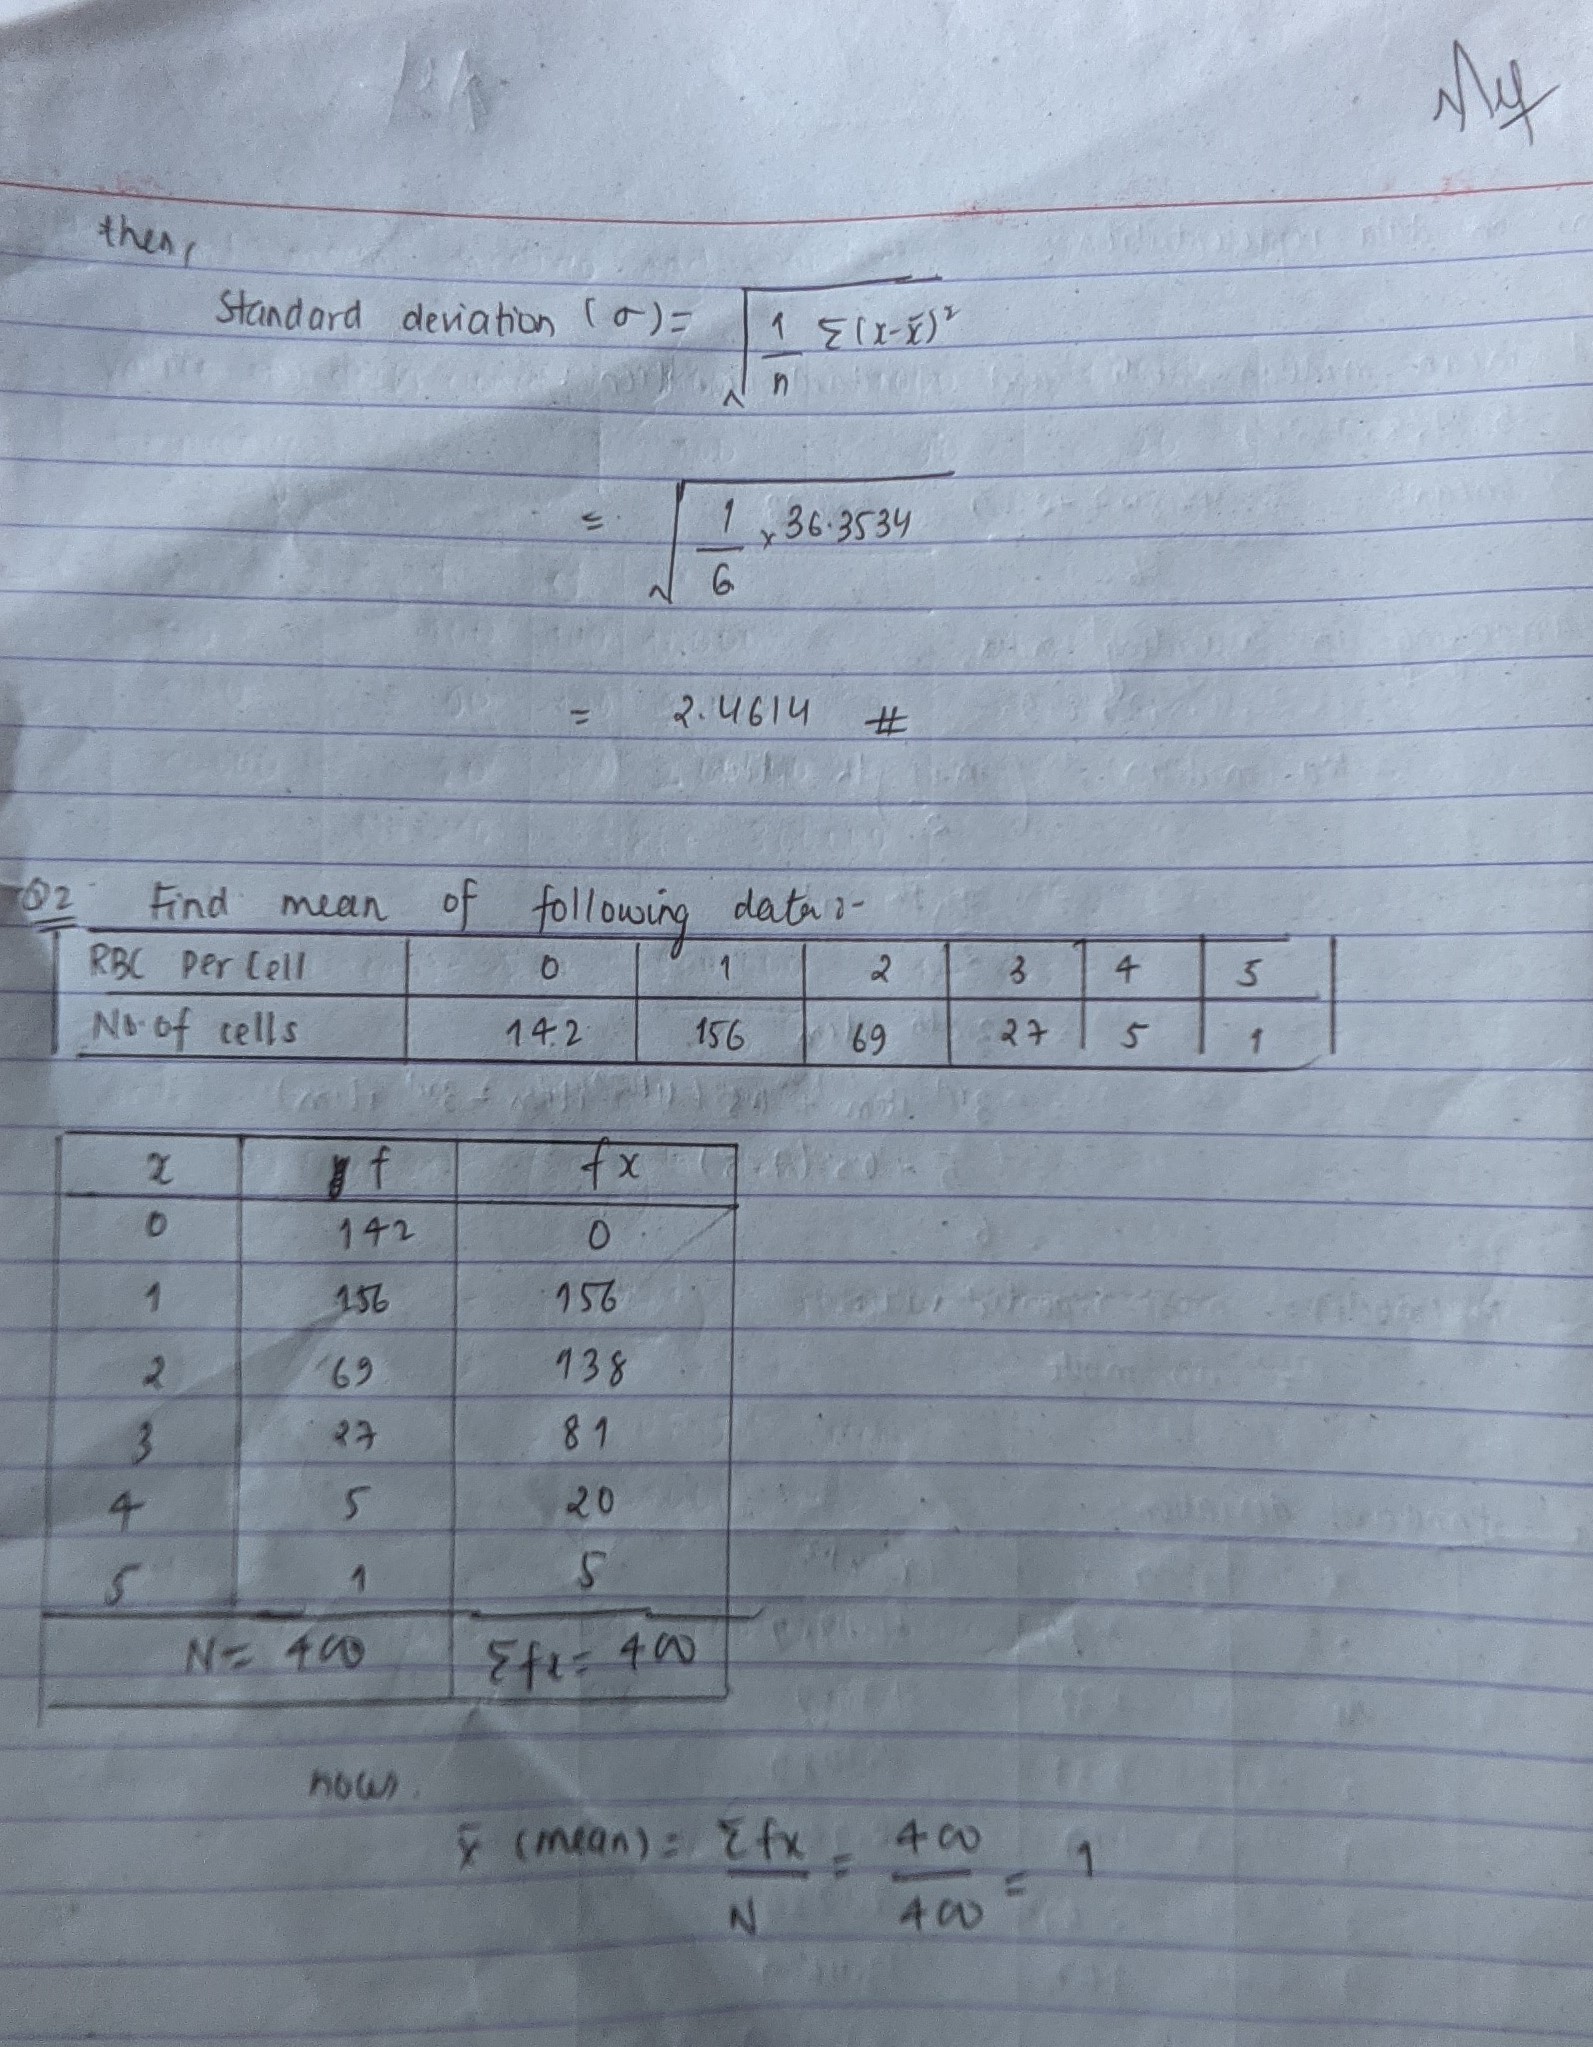 then,
Standard deviation (σ) = √ 1/n Σ(x-x̄)²
= √ 1/6 × 36.3534
= 2.4614 #
Q2 Find mean of following data :-
RBC Per Cell 0 1 2 3 4 5
No. of cells 142 156 69 27 5 1
x f fx
0 142 0
1 156 156
2 69 138
3 27 81
4 5 20
5 1 5
N = 400 Σfx = 400
now,
x̄ (mean) = Σfx/N = 400/400 = 1